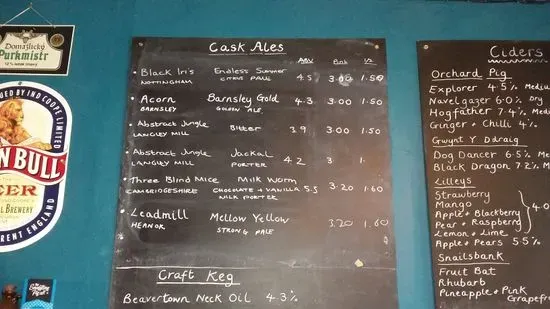 Domažlický
Purkmistr
IND COOPE LIMITED
N BULL
BREWERY
RENT ENGLAND
Cask Ales
ABV Pint ½
Black Iris Endless Summer 4.5 3.00 1.50
Nottingham Citrus Pale
Acorn Barnsley Gold 4.3 3.00 1.50
Barnsley Golden Ale
Abstract Jungle Bitter 3.9 3.00 1.50
Langley Mill
Abstract Jungle Jackal 4.2 3 1.
Langley Mill Porter
Three Blind Mice Milk Worm
Cambridgeshire Chocolate + Vanilla 5.5 3.20 1.60
Milk Porter
Leadmill Mellow Yellow 3.20 1.60
Heanor Strong Pale
Craft Keg
Beavertown Neck Oil 4.3%
Ciders
Orchard Pig
Explorer 4.5% Medium
Navelgazer 6.0% Dry
Hogfather 7.4% Medi
Ginger + Chilli 4%
Gwynt Y Ddraig
Dog Dancer 6.5% Med
Black Dragon 7.2% M
Lilleys
Strawberry
Mango
Apple + Blackberry
Pear + Raspberry
4.0
Lemon + Lime
Apple + Pears 5.5%
Snailsbank
Fruit Bat
Rhubarb
Pineapple + Pink
Grapefru